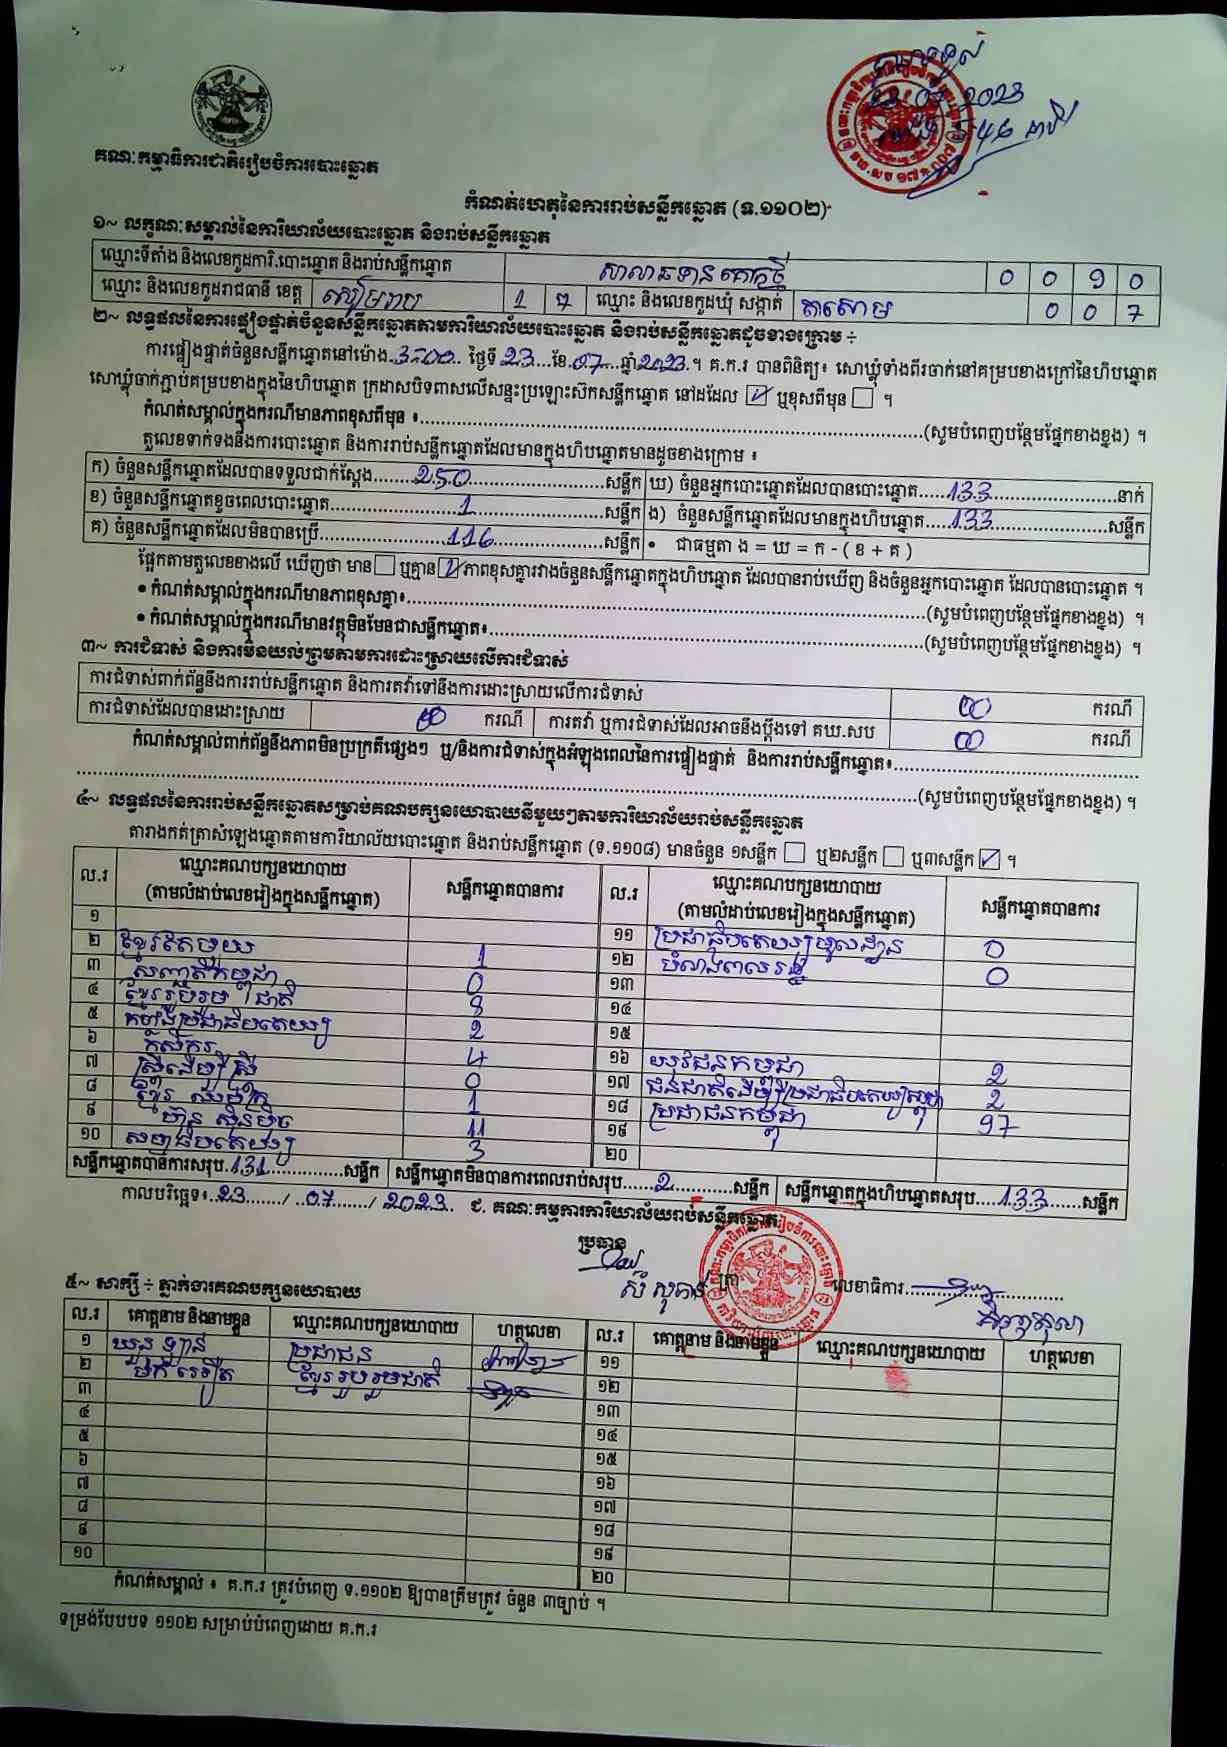 គណៈកម្មាធិការជាតិរៀបចំការបោះឆ្នោត
23 07 2023
កំណត់ហេតុនៃការរាប់សន្លឹកឆ្នោត (ទ.១១០២)
១~ លក្ខណៈសម្គាល់នៃការិយាល័យបោះឆ្នោត និងរាប់សន្លឹកឆ្នោត
ឈ្មោះទីតាំង និងលេខកូដការិ.បោះឆ្នោត និងរាប់សន្លឹកឆ្នោត សាលាឆទាន គោកថ្មី 0 0 9 0
ឈ្មោះ និងលេខកូដរាជធានី ខេត្ត សៀមរាប 1 7 ឈ្មោះ និងលេខកូដឃុំ សង្កាត់ តាសោម 0 0 7
២~ លទ្ធផលនៃការផ្ទៀងផ្ទាត់ចំនួនសន្លឹកឆ្នោតតាមការិយាល័យបោះឆ្នោត និងរាប់សន្លឹកឆ្នោតដូចខាងក្រោម ÷
ការផ្ទៀងផ្ទាត់ចំនួនសន្លឹកឆ្នោតនៅម៉ោង 3-00 ថ្ងៃទី 23 ខែ 07 ឆ្នាំ 2023 ។ គ.ក.រ បានពិនិត្យ៖ សោឃ្លុំទាំងពីរចាក់នៅគម្របខាងក្រៅនៃហិបឆ្នោត
សោឃ្លុំចាក់ភ្ជាប់គម្របខាងក្នុងនៃហិបឆ្នោត ក្រដាសបិទពាសលើសន្ទះប្រឡោះស៊កសន្លឹកឆ្នោត នៅដដែល ☑ ឬខុសពីមុន ☐ ។
កំណត់សម្គាល់ក្នុងករណីមានភាពខុសពីមុន ៖ (សូមបំពេញបន្ថែមផ្នែកខាងខ្នង) ។
តួលេខទាក់ទងនឹងការបោះឆ្នោត និងការរាប់សន្លឹកឆ្នោតដែលមានក្នុងហិបឆ្នោតមានដូចខាងក្រោម ៖
ក) ចំនួនសន្លឹកឆ្នោតដែលបានទទួលជាក់ស្តែង 250 សន្លឹក ឃ) ចំនួនអ្នកបោះឆ្នោតដែលបានបោះឆ្នោត 133 នាក់
ខ) ចំនួនសន្លឹកឆ្នោតខូចពេលបោះឆ្នោត 1 សន្លឹក ង) ចំនួនសន្លឹកឆ្នោតដែលមានក្នុងហិបឆ្នោត 133 សន្លឹក
គ) ចំនួនសន្លឹកឆ្នោតដែលមិនបានប្រើ 116 សន្លឹក • ជាធម្មតា ង = ឃ = ក - ( ខ + គ )
ផ្អែកតាមតួលេខខាងលើ ឃើញថា មាន ☐ ឬគ្មាន ☑ ភាពខុសគ្នារវាងចំនួនសន្លឹកឆ្នោតក្នុងហិបឆ្នោត ដែលបានរាប់ឃើញ និងចំនួនអ្នកបោះឆ្នោត ដែលបានបោះឆ្នោត ។
• កំណត់សម្គាល់ក្នុងករណីមានភាពខុសគ្នា៖ (សូមបំពេញបន្ថែមផ្នែកខាងខ្នង) ។
• កំណត់សម្គាល់ក្នុងករណីមានវត្ថុមិនមែនជាសន្លឹកឆ្នោត៖ (សូមបំពេញបន្ថែមផ្នែកខាងខ្នង) ។
៣~ ការជំទាស់ និងការមិនយល់ព្រមតាមការដោះស្រាយលើការជំទាស់
ការជំទាស់ពាក់ព័ន្ធនឹងការរាប់សន្លឹកឆ្នោត និងការតវ៉ាទៅនឹងការដោះស្រាយលើការជំទាស់ 00 ករណី
ការជំទាស់ដែលបានដោះស្រាយ 00 ករណី ការតវ៉ា ឬការជំទាស់ដែលអាចនឹងប្តឹងទៅ គឃ.សប 00 ករណី
កំណត់សម្គាល់ពាក់ព័ន្ធនឹងភាពមិនប្រក្រតីផ្សេងៗ ឬ/និងការជំទាស់ក្នុងអំឡុងពេលនៃការផ្ទៀងផ្ទាត់ និងការរាប់សន្លឹកឆ្នោត៖
(សូមបំពេញបន្ថែមផ្នែកខាងខ្នង) ។
៤~ លទ្ធផលនៃការរាប់សន្លឹកឆ្នោតសម្រាប់គណបក្សនយោបាយនីមួយៗតាមការិយាល័យរាប់សន្លឹកឆ្នោត
តារាងកត់ត្រាសំឡេងឆ្នោតតាមការិយាល័យបោះឆ្នោត និងរាប់សន្លឹកឆ្នោត (ទ.១១០៨) មានចំនួន ១សន្លឹក ☐ ឬ២សន្លឹក ☐ ឬ៣សន្លឹក ☑ ។
ល.រ ឈ្មោះគណបក្សនយោបាយ (តាមលំដាប់លេខរៀងក្នុងសន្លឹកឆ្នោត) សន្លឹកឆ្នោតបានការ ល.រ ឈ្មោះគណបក្សនយោបាយ (តាមលំដាប់លេខរៀងក្នុងសន្លឹកឆ្នោត) សន្លឹកឆ្នោតបានការ
១ ខ្មែរតែមួយ 1 ១១ ប្រជាធិបតេយ្យមូលដ្ឋាន 0
២ សញ្ជាតិកម្ពុជា 0 ១២ បំលាងពលរដ្ឋ 0
៣ ខ្មែររួបរួមជាតិ 8 ១៣
៤ កម្លាំងប្រជាធិបតេយ្យ 2 ១៤
៥ កសិករ 4 ១៥
៦ ស្ត្រីដើម្បីស្ត្រី 0 ១៦ យុវជនកម្ពុជា 2
៧ ខ្មែរ ឈប់ក្រ 1 ១៧ ជនជាតិដើម្បីប្រជាធិបតេយ្យកម្ពុជា 2
៨ ហ៊្វុនស៊ិនប៉ិច 11 ១៨ ប្រជាជនកម្ពុជា 97
៩ សញ្ញាធិបតេយ្យ 3 ១៩
១០ ២០
សន្លឹកឆ្នោតបានការសរុប 131 សន្លឹក សន្លឹកឆ្នោតមិនបានការពេលរាប់សរុប 2 សន្លឹក សន្លឹកឆ្នោតក្នុងហិបឆ្នោតសរុប 133 សន្លឹក
កាលបរិច្ឆេទ៖ 23 / 07 / 2023 ជ. គណៈកម្មការការិយាល័យរាប់សន្លឹកឆ្នោត
ប្រធាន
សំ សុផាន់ លេខាធិការ
៥~ សាក្សី ÷ ភ្នាក់ងារគណបក្សនយោបាយ
ល.រ គោត្តនាម និងនាមខ្លួន ឈ្មោះគណបក្សនយោបាយ ហត្ថលេខា ល.រ គោត្តនាម និងនាមខ្លួន ឈ្មោះគណបក្សនយោបាយ ហត្ថលេខា
១ ឃួន ឡាន់ ប្រជាជន ១១
២ ម៉ក់ រឿត ខ្មែររួបរួមជាតិ ១២
៣ ១៣
៤ ១៤
៥ ១៥
៦ ១៦
៧ ១៧
៨ ១៨
៩ ១៩
១០ ២០
កំណត់សម្គាល់ ៖ គ.ក.រ ត្រូវបំពេញ ទ.១១០២ ឱ្យបានត្រឹមត្រូវ ចំនួន ៣ច្បាប់ ។
ទម្រង់បែបបទ ១១០២ សម្រាប់បំពេញដោយ គ.ក.រ